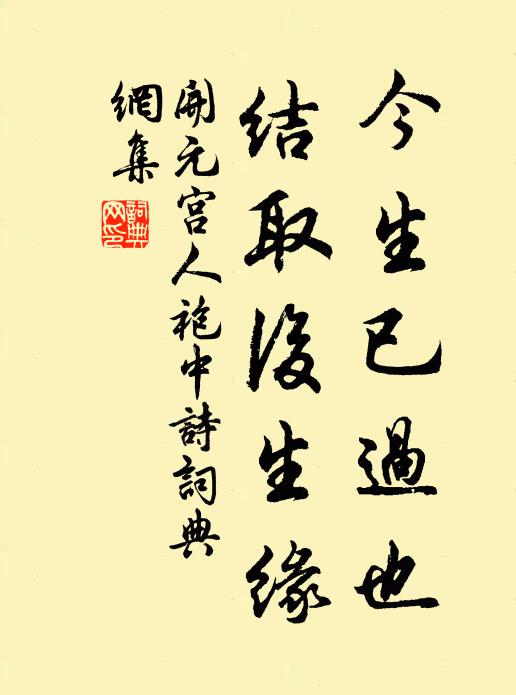 今生已過也
結取後生緣
開元宮人袍中詩詞典
網集
詞典
网印